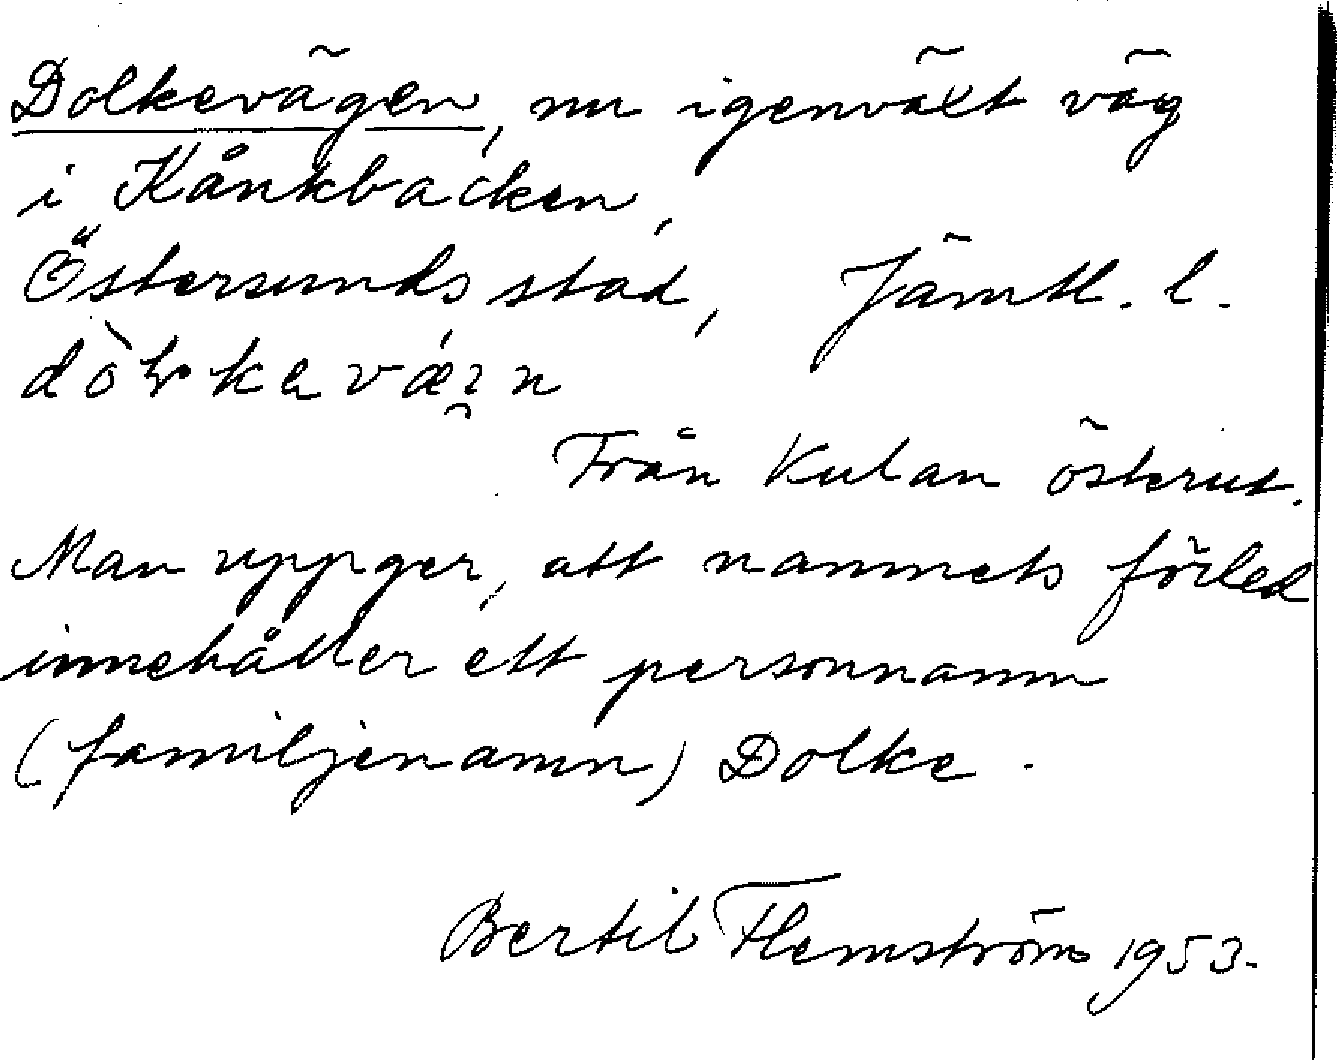 Dolkevägen, nu igenväxt väg
i Kånkbacken,
Östersunds stad, Jämtl. l.
Från Kulan österut.
Man uppger, att namnets förled
innehåller ett personnamn
(familjenamn) Dolke.
Bertil Flemström 1953.